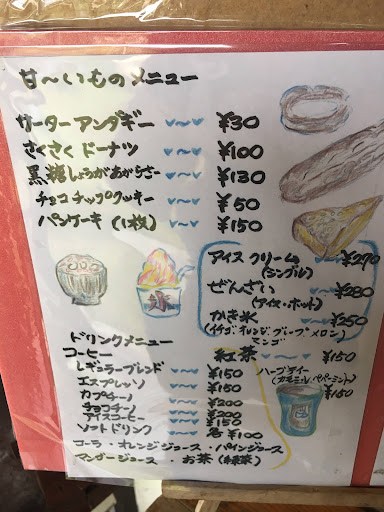 甘〜いものメニュー
サーターアンダギー 〜 ¥30
さくさくドーナツ 〜 ¥100
黒糖しょうがあがらさー 〜 ¥130
チョコチップクッキー 〜 ¥50
パンケーキ (1枚) 〜 ¥150
アイスクリーム 〜 ¥270
(シングル)
ぜんざい 〜 ¥280
(アイス・ホット)
かき氷 〜 ¥250
(イチゴ・オレンジ・グレープ・メロン)
マンゴ
ドリンクメニュー
コーヒー
レギュラーブレンド 〜 ¥150
エスプレッソ 〜 ¥150
カプチーノ 〜 ¥200
チョコチーノ 〜 ¥200
アイスコーヒー 〜 ¥150
ソフトドリンク 〜 各 ¥100
コーラ・オレンジジュース・パインジュース
マンゴージュース・お茶 (緑茶)
紅茶 〜 ¥150
ハーブティー
(カモミール・ペパーミント)
¥150